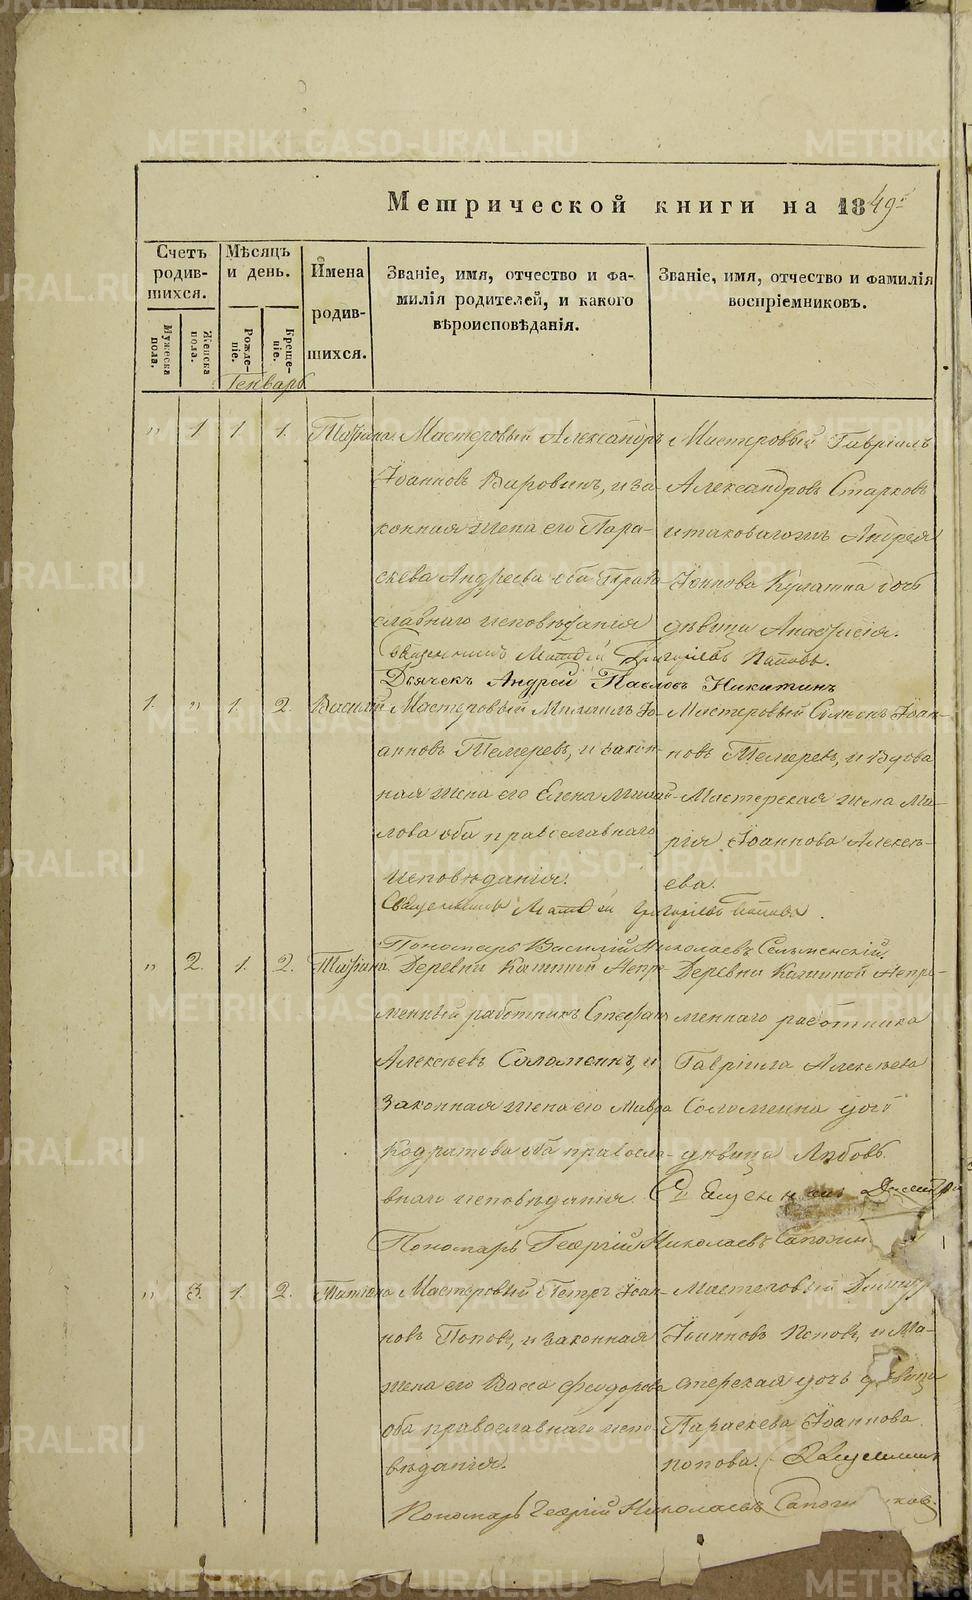 Метрической книги на 1849г
Счетъ родив-шихся.
Мужеска пола.
Женска пола.
Мѣсяцъ и день.
Рожде-ніе.
Креще-ніе.
Имена родив-шихся.
Званіе, имя, отчество и фа-
милія родителей, и какого
вѣроисповѣданія.
Званіе, имя, отчество и фамилія
воспріемниковъ.
Генварь
" 1. 1. 1. Татіана
Мастеровый Александръ
Іоанновъ, и за-
конная жена его Пара-
скева Андреева оба Право-
славнаго исповѣданія
Мастеровый Гавріилъ
Александровъ Старковъ
и таковагожъ Андрея
Іоаннова дочь
дѣвица Анастасія.
Священникъ Матѳій Григорьевъ Поповъ.
Дьячекъ Андрей Павловъ Никитинъ
1. " 1. 2. Василій
Мастеровый Михаилъ Іо-
анновъ Темеревъ, и закон-
ная жена его Елена Михай-
лова оба православнаго
исповѣданія.
Мастеровый Симеонъ Іоан-
новъ Темеревъ, и вдова
Мастерская жена Ма-
рія Іоаннова Алексѣ-
ева.
Священникъ Матѳій Григорьевъ Поповъ.
Пономарь Василій Николаевъ Селыменскій.
" 2. 1. 2. Татіана
Деревни Калиной Непре-
менный работникъ Стефанъ
Алексѣевъ Соломеинъ, и
законная жена его Мавра
Кодратова оба правосла-
внаго исповѣданія.
Деревни Калиной Непре-
меннаго работника
Гавріила Алексѣева
Соломеина дочь
дѣвица Любовь.
Священникъ Димитрі
Пономарь Георгій Николаевъ Сапожн
" 3. 1. 2. Татіана
Мастеровый Петръ Іоан-
новъ Поповъ, и законная
жена его Васса Феодорова
оба православнаго испо-
вѣданія.
Мастеровый Димитр
Іоанновъ Поповъ, и Ма-
стерская дочь дѣвица
Параскева Іоаннова
Попова. Священникъ
Пономарь Георгій Николаевъ Сапож ковъ.
METRIKI.GASO-URAL.RU